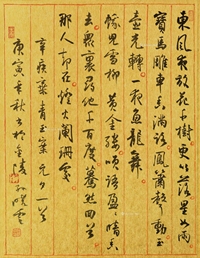 東風夜放花千樹更吹落星如雨
寶馬雕車香滿路鳳簫聲動玉
壺光轉一夜魚龍舞
蛾兒雪柳黃金縷笑語盈盈暗香
去衆裏尋他千百度驀然回首
那人卻在燈火闌珊處
辛棄疾青玉案元夕一首
庚寅秋書於金陵孫曉雲